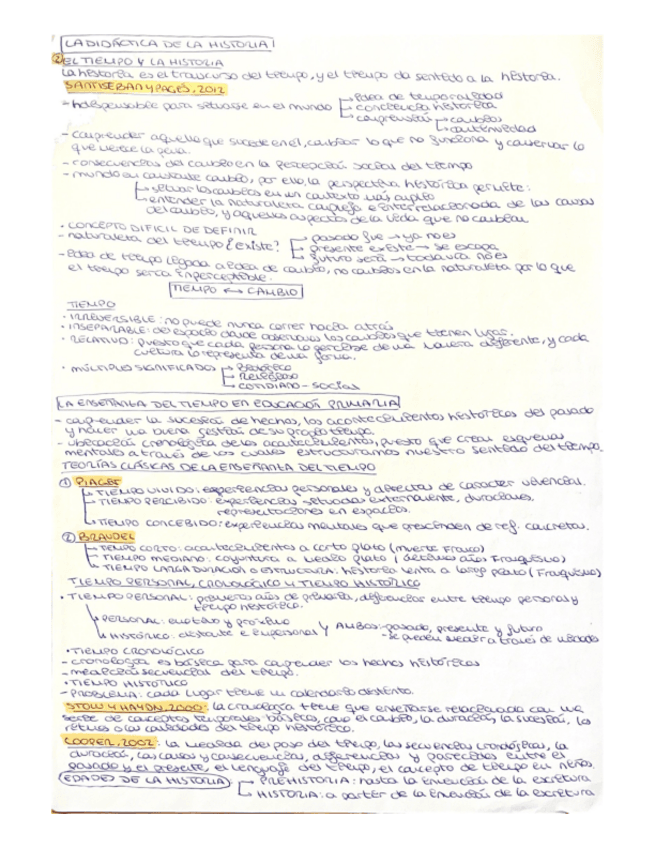 LA DIDÁCTICA DE LA HISTORIA
② EL TIEMPO Y LA HISTORIA
La historia es el transcurso del tiempo, y el tiempo da sentido a la historia.
SANTISEBAN Y PAGÉS, 2012
- Indispensable para situarse en el mundo → Idea de temporalidad
→ conciencia histórica
→ comprensión → cambios
→ continuidad
- comprender aquello que sucede en él, cambiar lo que no funciona y conservar lo
que merece la pena.
- consecuencias del cambio en la percepción social del tiempo
- mundo en constante cambio, por ello, la perspectiva histórica permite:
→ situar los cambios en un contexto más amplio
→ entender la naturaleza compleja e interrelacionada de las causas
del cambio, y aquellos aspectos de la vida que no cambian
• CONCEPTO DIFICIL DE DEFINIR
- naturaleza del tiempo ¿existe? → pasado fue → ya no es
→ presente existe → se escapa
→ futuro será → todavía no es
- Idea de tiempo ligada a idea de cambio, no cambios en la naturaleza por lo que
el tiempo sería imperceptible.
TIEMPO ↔ CAMBIO
TIEMPO
• IRREVERSIBLE: no puede nunca correr hacia atrás
• INSEPARABLE: del espacio donde observamos los cambios que tienen lugar.
• RELATIVO: puesto que cada persona lo percibe de una manera diferente, y cada
cultura lo representa de una forma.
• MÚLTIPLES SIGNIFICADOS → Filosófico
→ Religioso
→ COTIDIANO - social
LA ENSEÑANZA DEL TIEMPO EN EDUCACIÓN PRIMARIA
- comprender la sucesión de hechos, los acontecimientos históricos del pasado
y hacer una buena gestión de su propio tiempo.
- ubicación cronológica de los acontecimientos, puesto que crean esquemas
mentales a través de los cuales estructuramos nuestro sentido del tiempo.
TEORÍAS CLÁSICAS DE LA ENSEÑANZA DEL TIEMPO
① PIAGET
→ TIEMPO VIVIDO: experiencias personales y directas de carácter vivencial.
→ TIEMPO PERCIBIDO: experiencias situadas externamente, duraciones,
representaciones en espacios.
→ TIEMPO CONCEBIDO: experiencias mentales que prescinden de ref. concretas.
② BRAUDEL
→ TIEMPO CORTO: acontecimientos a corto plazo (muerte Franco)
→ TIEMPO MEDIANO: coyuntura a medio plazo (últimos años Franquismo)
→ TIEMPO LARGA DURACIÓN o ESTRUCTURA: historia lenta a largo plazo (Franquismo)
TIEMPO PERSONAL, CRONOLÓGICO Y TIEMPO HISTÓRICO
• TIEMPO PERSONAL: primeros años de primaria, diferenciar entre tiempo personal y
tiempo histórico.
→ PERSONAL: emotivo y próximo
→ HISTÓRICO: distante e impersonal y AMBOS: - pasado, presente y futuro
- se pueden medir a través de
• TIEMPO CRONOLÓGICO
- cronología es básica para comprender los hechos históricos
- medición secuencial del tiempo.
• TIEMPO HISTÓRICO
- PROBLEMA: cada lugar tiene un calendario distinto.
STOW Y HAYDN, 2000: la cronología tiene que enseñarse relacionada con una
serie de conceptos temporales básicos, como el cambio, la duración, la sucesión, los
ritmos o las cualidades del tiempo histórico.
COOPER, 2002: la medida del paso del tiempo, las secuencias cronológicas, la
duración, las causas y consecuencias, diferencias y parecidos entre el
pasado y el presente, el lenguaje del tiempo, el concepto de tiempo en niños.
EDADES DE LA HISTORIA: → PREHISTORIA: hasta la invención de la escritura
→ HISTORIA: a partir de la invención de la escritura